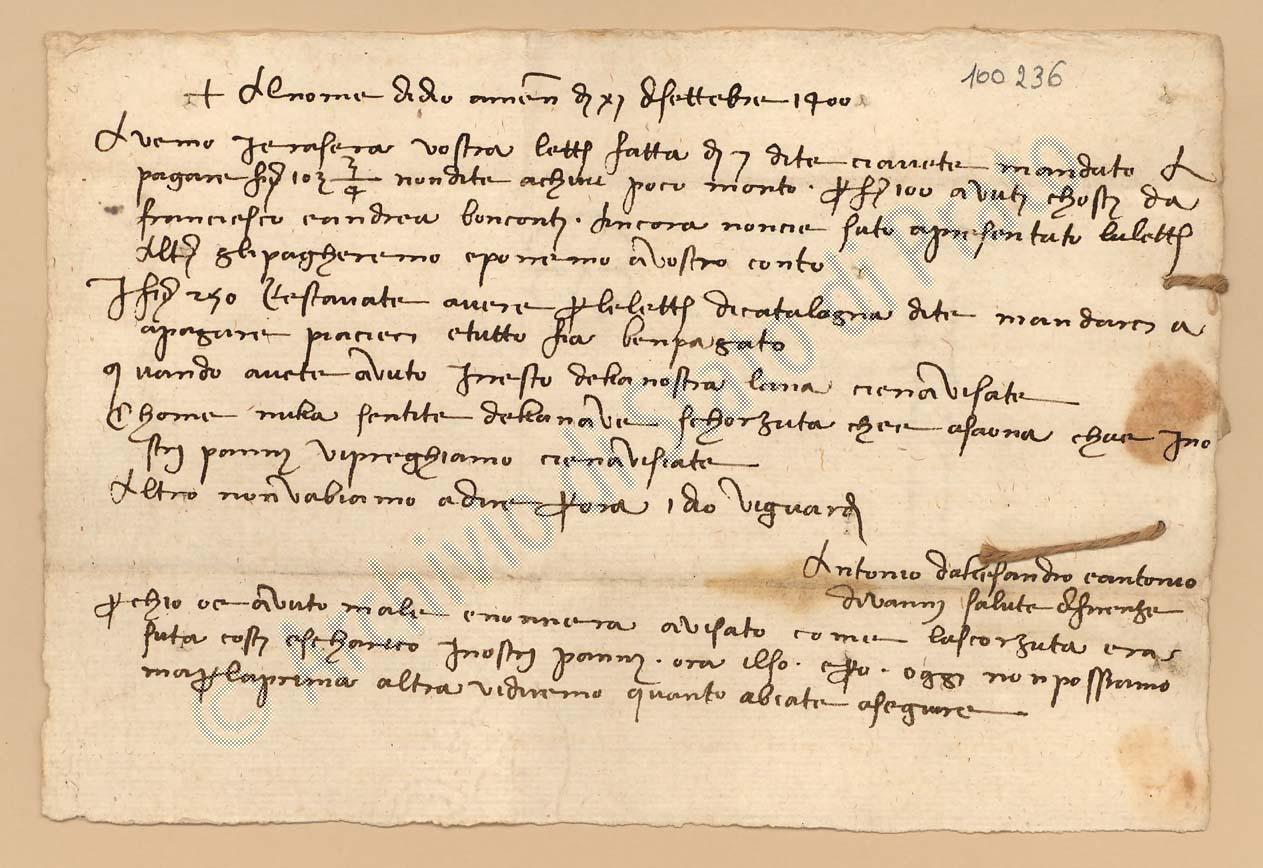 100 236
+ Al nome di dio amen dì xi di settebre 1400
Avemo ierasera vostra lettera fatta dì 7 dite ci avete mandato a
pagare fior 103 3/4 non dite a chi poco monto per fior 100 avuti chosti da
franciescho e andrea bonconti ancora non cie suto apresentato la lettera
altri gli pagheremo e poremo a vostro conto
I fior 250 restavate avere per le lettere di catalogna dite mandarci a
a pagare piacieci e tutto fia ben pagato
quando avete avuto i resto della nostra lana cie n avisate
Chome nulla sentite della nave schorzuta che e a saona chae i no
stri panni vi preghiamo cie n avisiate
Altro non v abiamo a dire per ora i dio vi guardi
Antonio d alesandro e antonio
di vanni salute di firenze
per ch io o e avuto male e non n era avisato come la scorzuta era
suta costi e scharico i nostri panni ora il so e pero oggi non possiamo
ma per la prima altra vi diremo quanto abiate a seguire
© Archivio di Stato di Prato